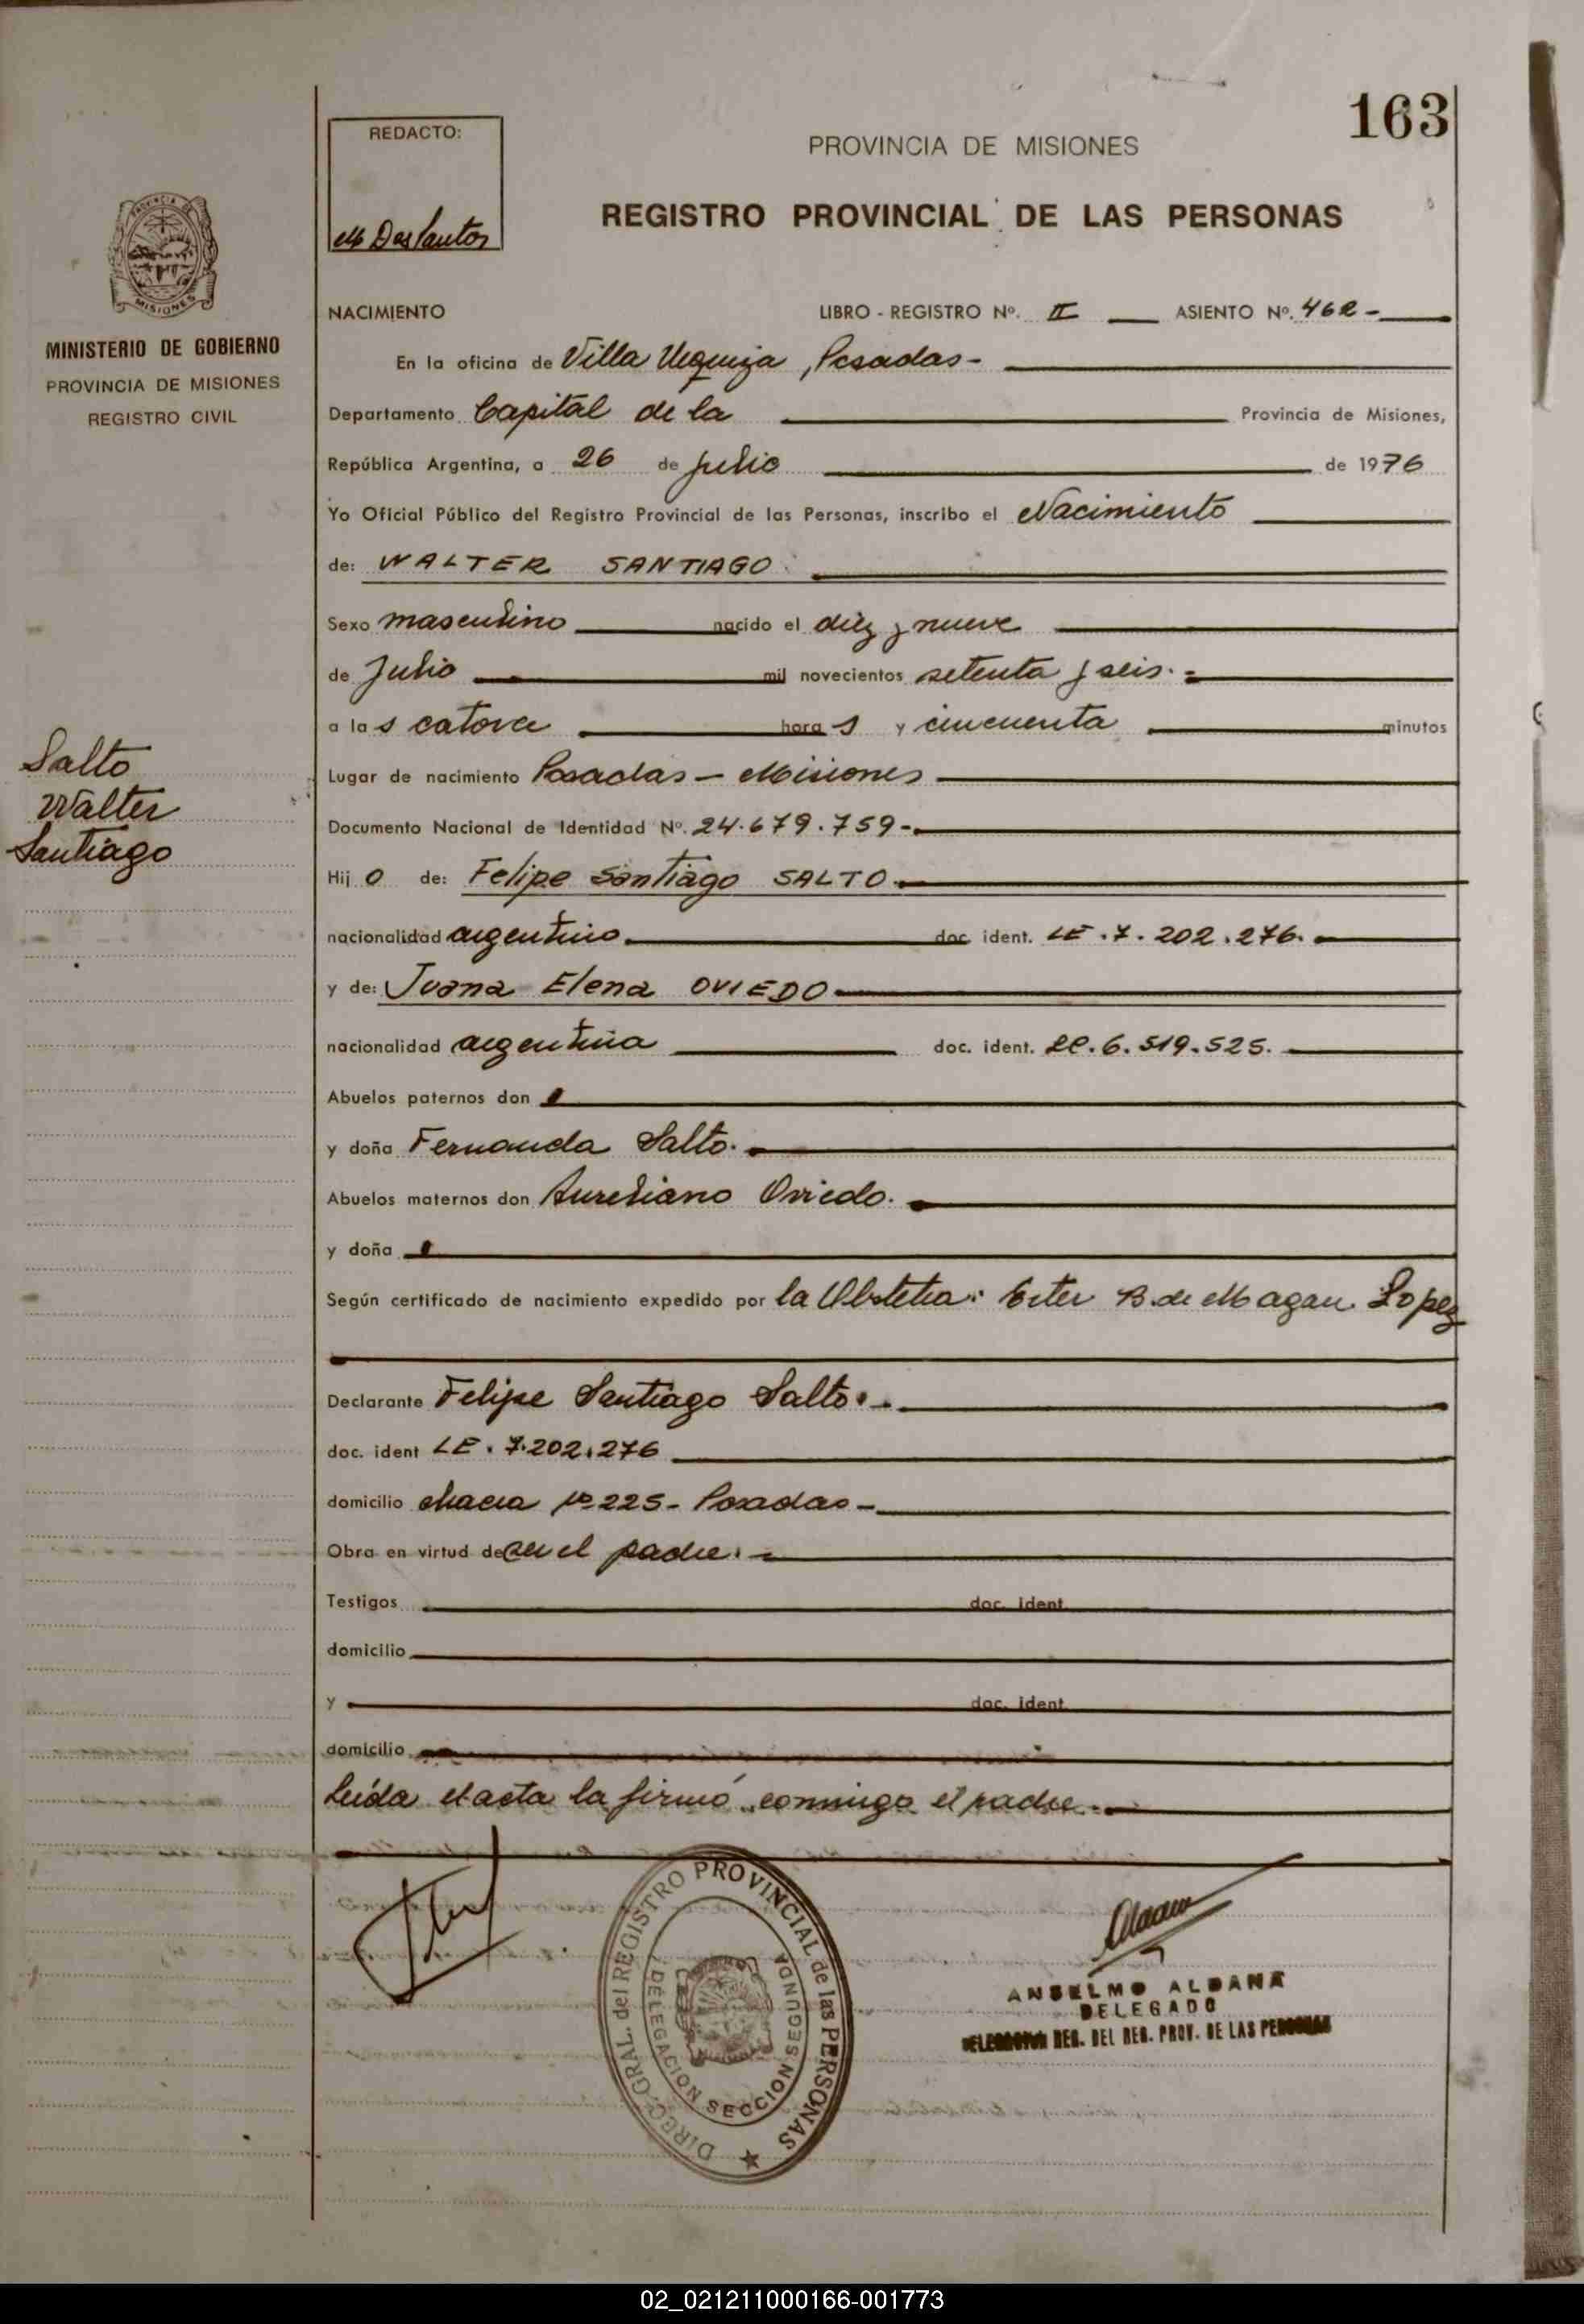 163
REDACTO:
M Dos Santos
PROVINCIA DE MISIONES
REGISTRO PROVINCIAL DE LAS PERSONAS
PROVINCIA DE
MISIONES
MINISTERIO DE GOBIERNO
PROVINCIA DE MISIONES
REGISTRO CIVIL
NACIMIENTO LIBRO - REGISTRO Nº. II ASIENTO Nº. 462 -
En la oficina de Villa Urquiza, Posadas -
Departamento Capital de la Provincia de Misiones,
República Argentina, a 26 de Julio de 1976
Yo Oficial Público del Registro Provincial de las Personas, inscribo el Nacimiento
de: WALTER SANTIAGO.
Sexo masculino nacido el diez y nueve
de Julio mil novecientos setenta y seis.
a las catorce horas y cincuenta minutos
Salto
Walter
Santiago
Lugar de nacimiento Posadas - Misiones
Documento Nacional de Identidad Nº. 24.679.759-
Hijo de: Felipe Santiago SALTO.
nacionalidad argentino. doc. ident. LE.7.202.276.
y de: Juana Elena OVIEDO
nacionalidad argentina doc. ident. LC.6.519.525.
Abuelos paternos don
y doña Fernanda Salto.
Abuelos maternos don Aureliano Oviedo.
y doña
Según certificado de nacimiento expedido por la Obstetra: Ester B. de Magan Lopez
Declarante Felipe Santiago Salto.
doc. ident LE. 7.202.276
domicilio chacra Nº 225 - Posadas -
Obra en virtud de ser el padre. -
Testigos doc. ident
domicilio
y doc. ident
domicilio
Leída el acta la firmó conmigo el padre. -
DIREC. GRAL. del REGISTRO PROVINCIAL de las PERSONAS
DELEGACION SECCION SEGUNDA
ANSELMO ALDANA
DELEGADO
DELEGACION REG. DEL REG. PROV. DE LAS PERSONAS
02_021211000166-001773